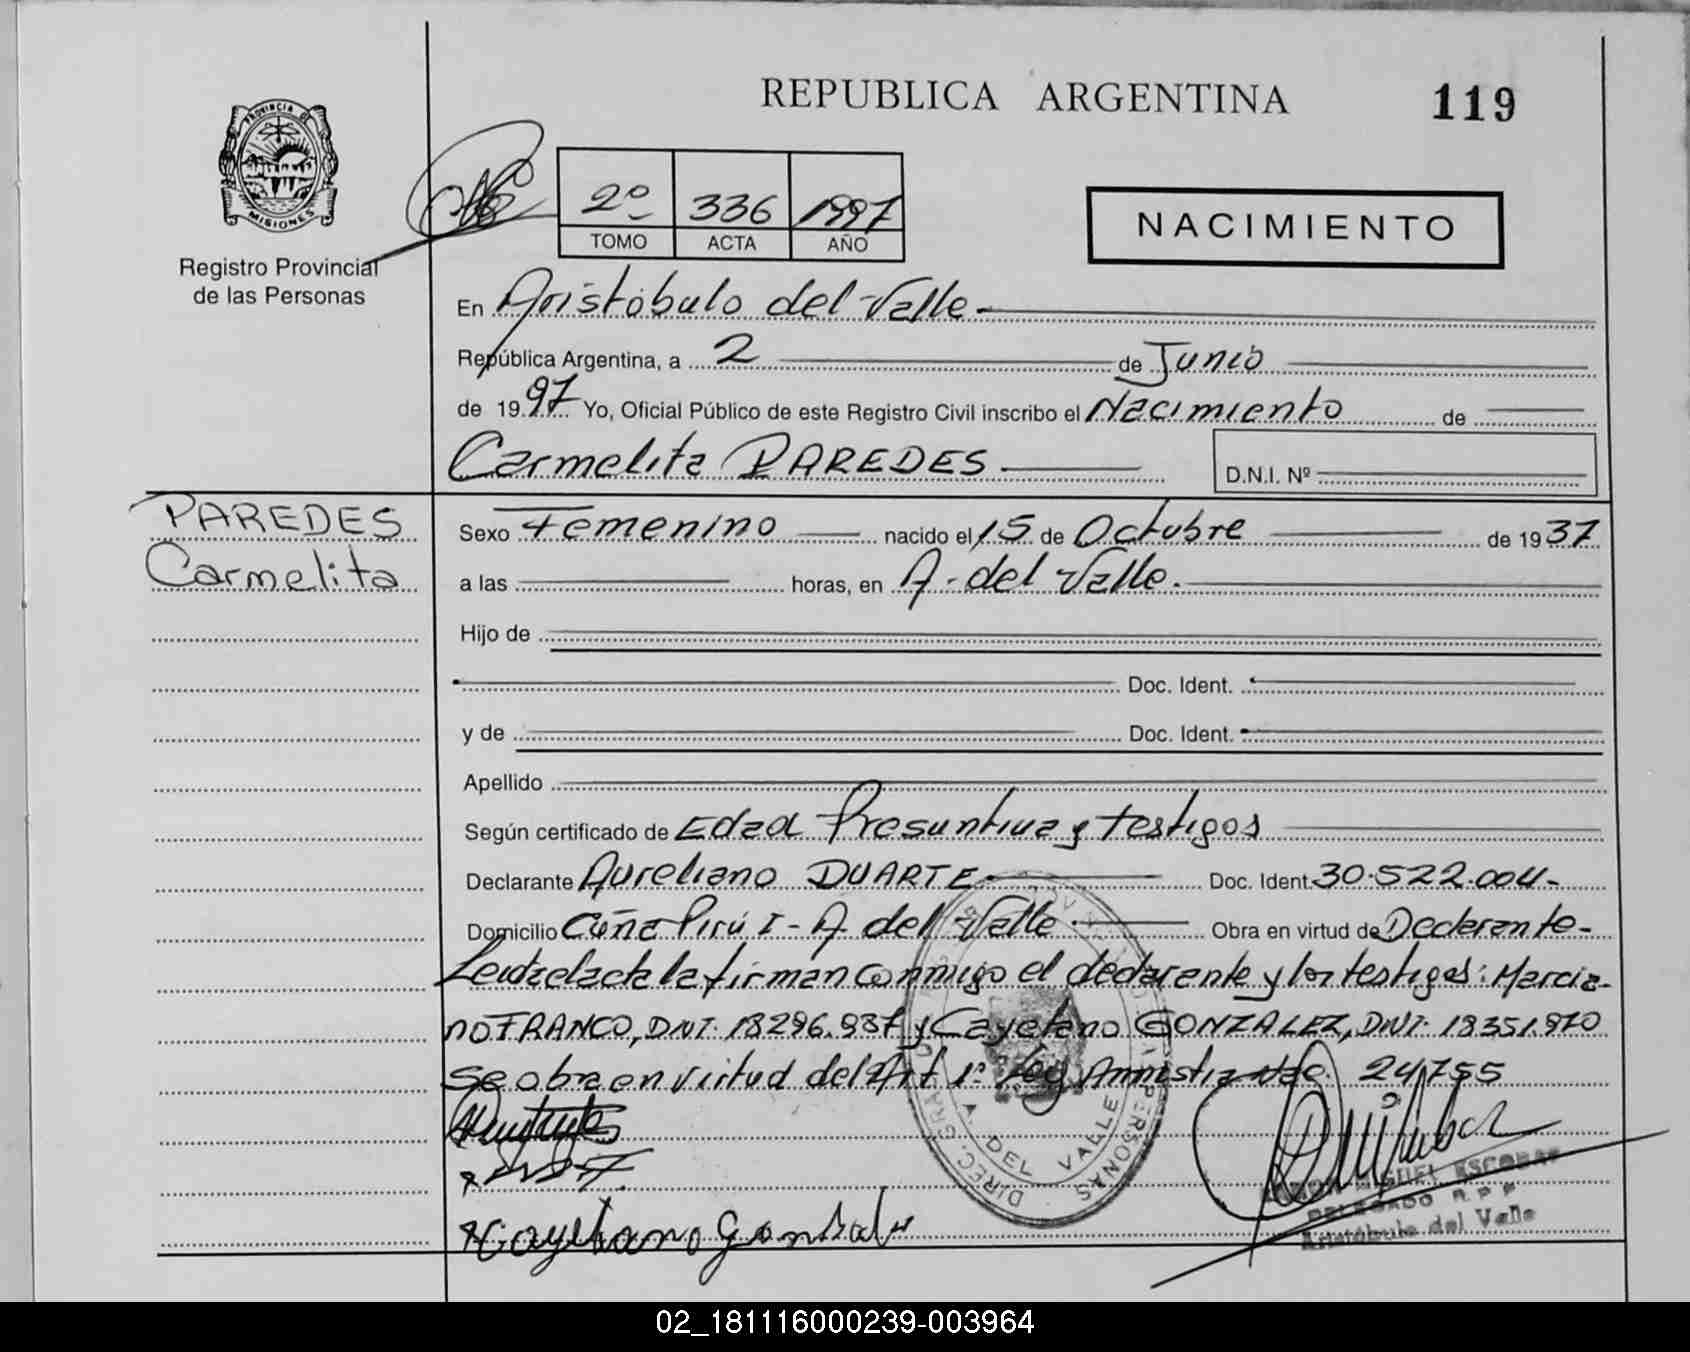 REPUBLICA ARGENTINA
119
PROVINCIA DE
MISIONES
Registro Provincial
de las Personas
2º 336 1997
TOMO ACTA AÑO
NACIMIENTO
En Aristóbulo del Valle
República Argentina, a 2 de Junio
de 1997 Yo, Oficial Público de este Registro Civil inscribo el Nacimiento de
Carmelita PAREDES D.N.I. Nº
PAREDES
Carmelita
Sexo Femenino nacido el 15 de Octubre de 1937
a las horas, en A. del Valle.
Hijo de
Doc. Ident.
y de Doc. Ident.
Apellido
Según certificado de Edad Presuntiva y testigos
Declarante Aureliano DUARTE Doc. Ident. 30.522.004-
Domicilio Cuña Pirú I - A del Valle Obra en virtud de Declarante-
Leida el acta la firman conmigo el declarante y los testigos: Marcia-
no FRANCO, DNI. 18296.937 y Cayetano GONZALEZ, DNI. 18351.970
se obra en virtud del Art 1º Ley Amnistia Nac. 24755
DIREC. GRAL. PERSONAS
A DEL VALLE
Cayetano
RAMON MIGUEL ESCOBAR
DELEGADO R.P.P
Aristóbulo del Valle
02_181116000239-003964